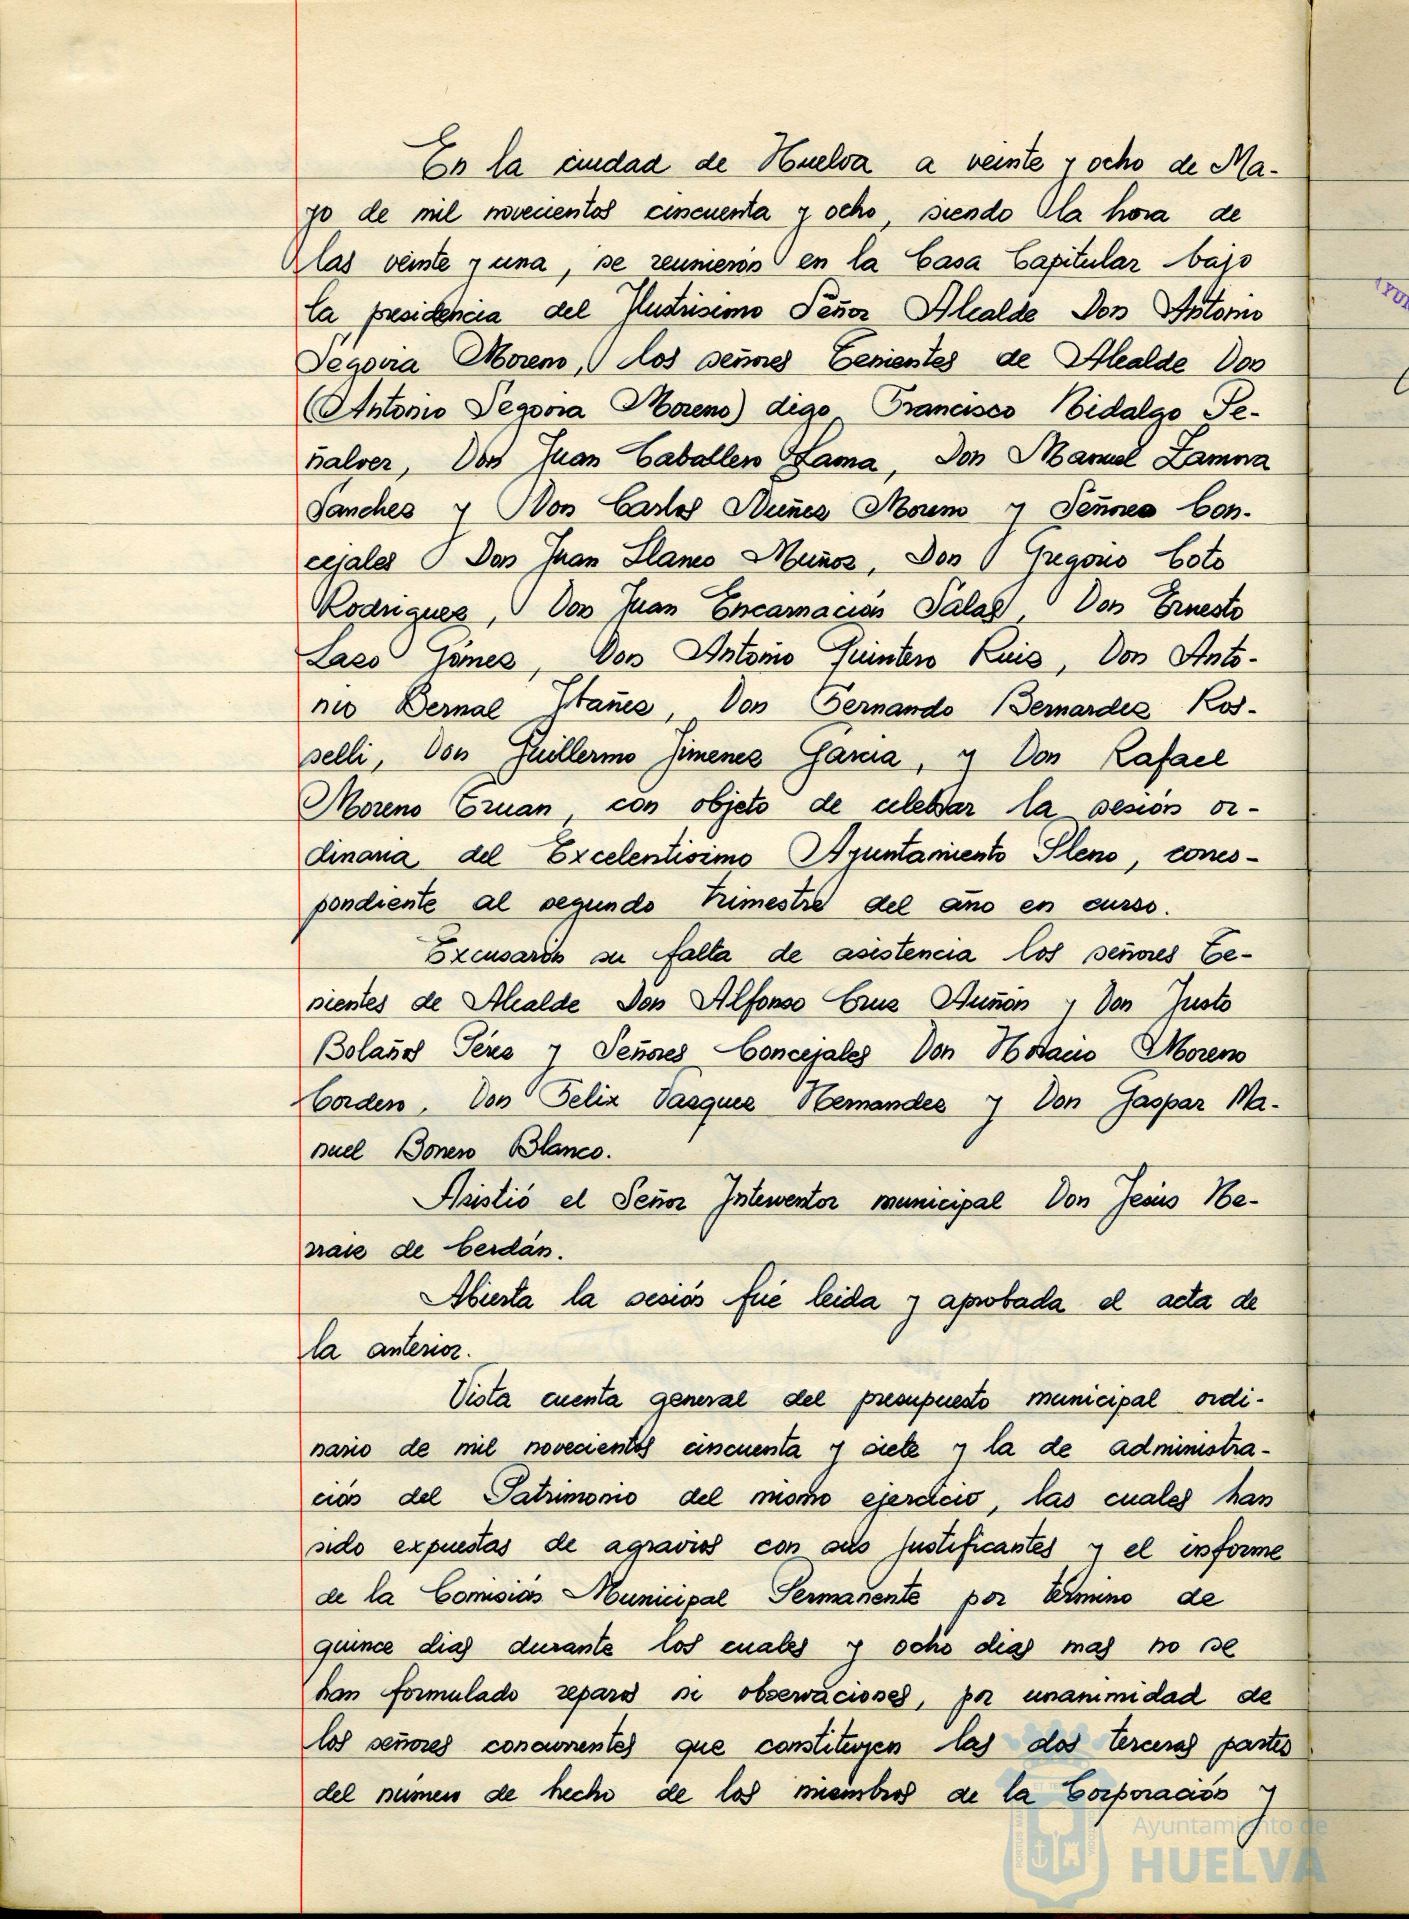 En la ciudad de Huelva a veinte y ocho de Ma-
yo de mil novecientos cincuenta y ocho, siendo la hora de
las veinte y una, se reunieron en la Casa Capitular bajo
la presidencia del Ilustrisimo Señor Alcalde Don Antonio
Segovia Moreno, los señores Tenientes de Alcalde Don
(Antonio Segovia Moreno) digo Francisco Hidalgo Pe-
ñalver, Don Juan Caballero Lama, Don Manuel Zamora
Sanchez y Don Carlos Nuñez Moreno y Señores Con-
cejales Don Juan Llanes Muñoz, Don Gregorio Coto
Rodriguez, Don Juan Encarnación Salas, Don Ernesto
Lazo Gómez, Don Antonio Quintero Ruiz, Don Anto-
nio Bernal Ibañez, Don Fernando Bernardez Ros-
selli, Don Guillermo Jimenez Garcia, y Don Rafael
Moreno Truan, con objeto de celebrar la sesión or-
dinaria del Excelentisimo Ayuntamiento Pleno, corres-
pondiente al segundo trimestre del año en curso.
Excusarón su falta de asistencia los señores Te-
nientes de Alcalde Don Alfonso Cruz Auñón y Don Justo
Bolaños Pérez y Señores Concejales Don Horacio Moreno
Cordero, Don Felix Vazquez Hernandez y Don Gaspar Ma-
nuel Bonero Blanco.
Asistió el Señor Interventor municipal Don Jesús He-
rraiz de Cerdán.
Abierta la sesión fué leida y aprobada el acta de
la anterior.
Vista cuenta general del presupuesto municipal ordi-
nario de mil novecientos cincuenta y siete y la de administra-
ción del Patrimonio del mismo ejercicio, las cuales han
sido expuestas de agravios con sus justificantes y el informe
de la Comisión Municipal Permanente por término de
quince dias durante los cuales y ocho dias mas no se
han formulado reparos ni observaciones, por unanimidad de
los señores concurrentes que constituyen las dos terceras partes
del número de hecho de los miembros de la Corporación y
Ayuntamiento de
HUELVA